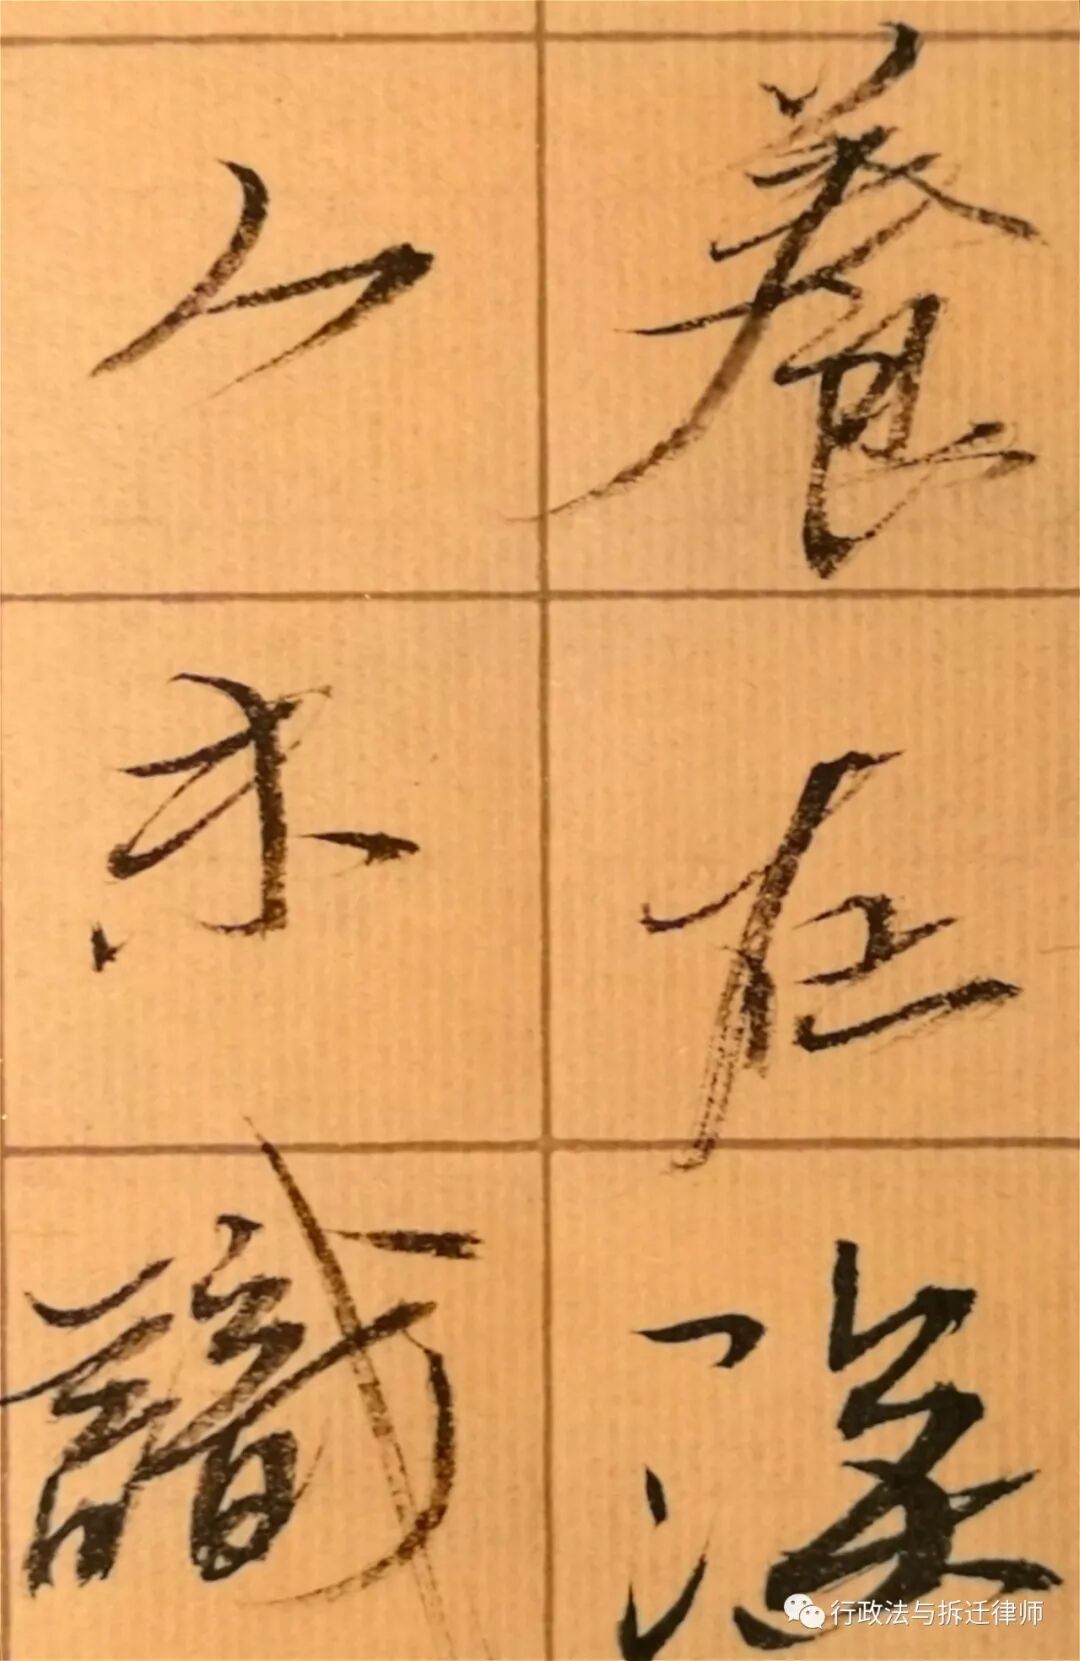 養在深
人未識
行政法与拆迁律师